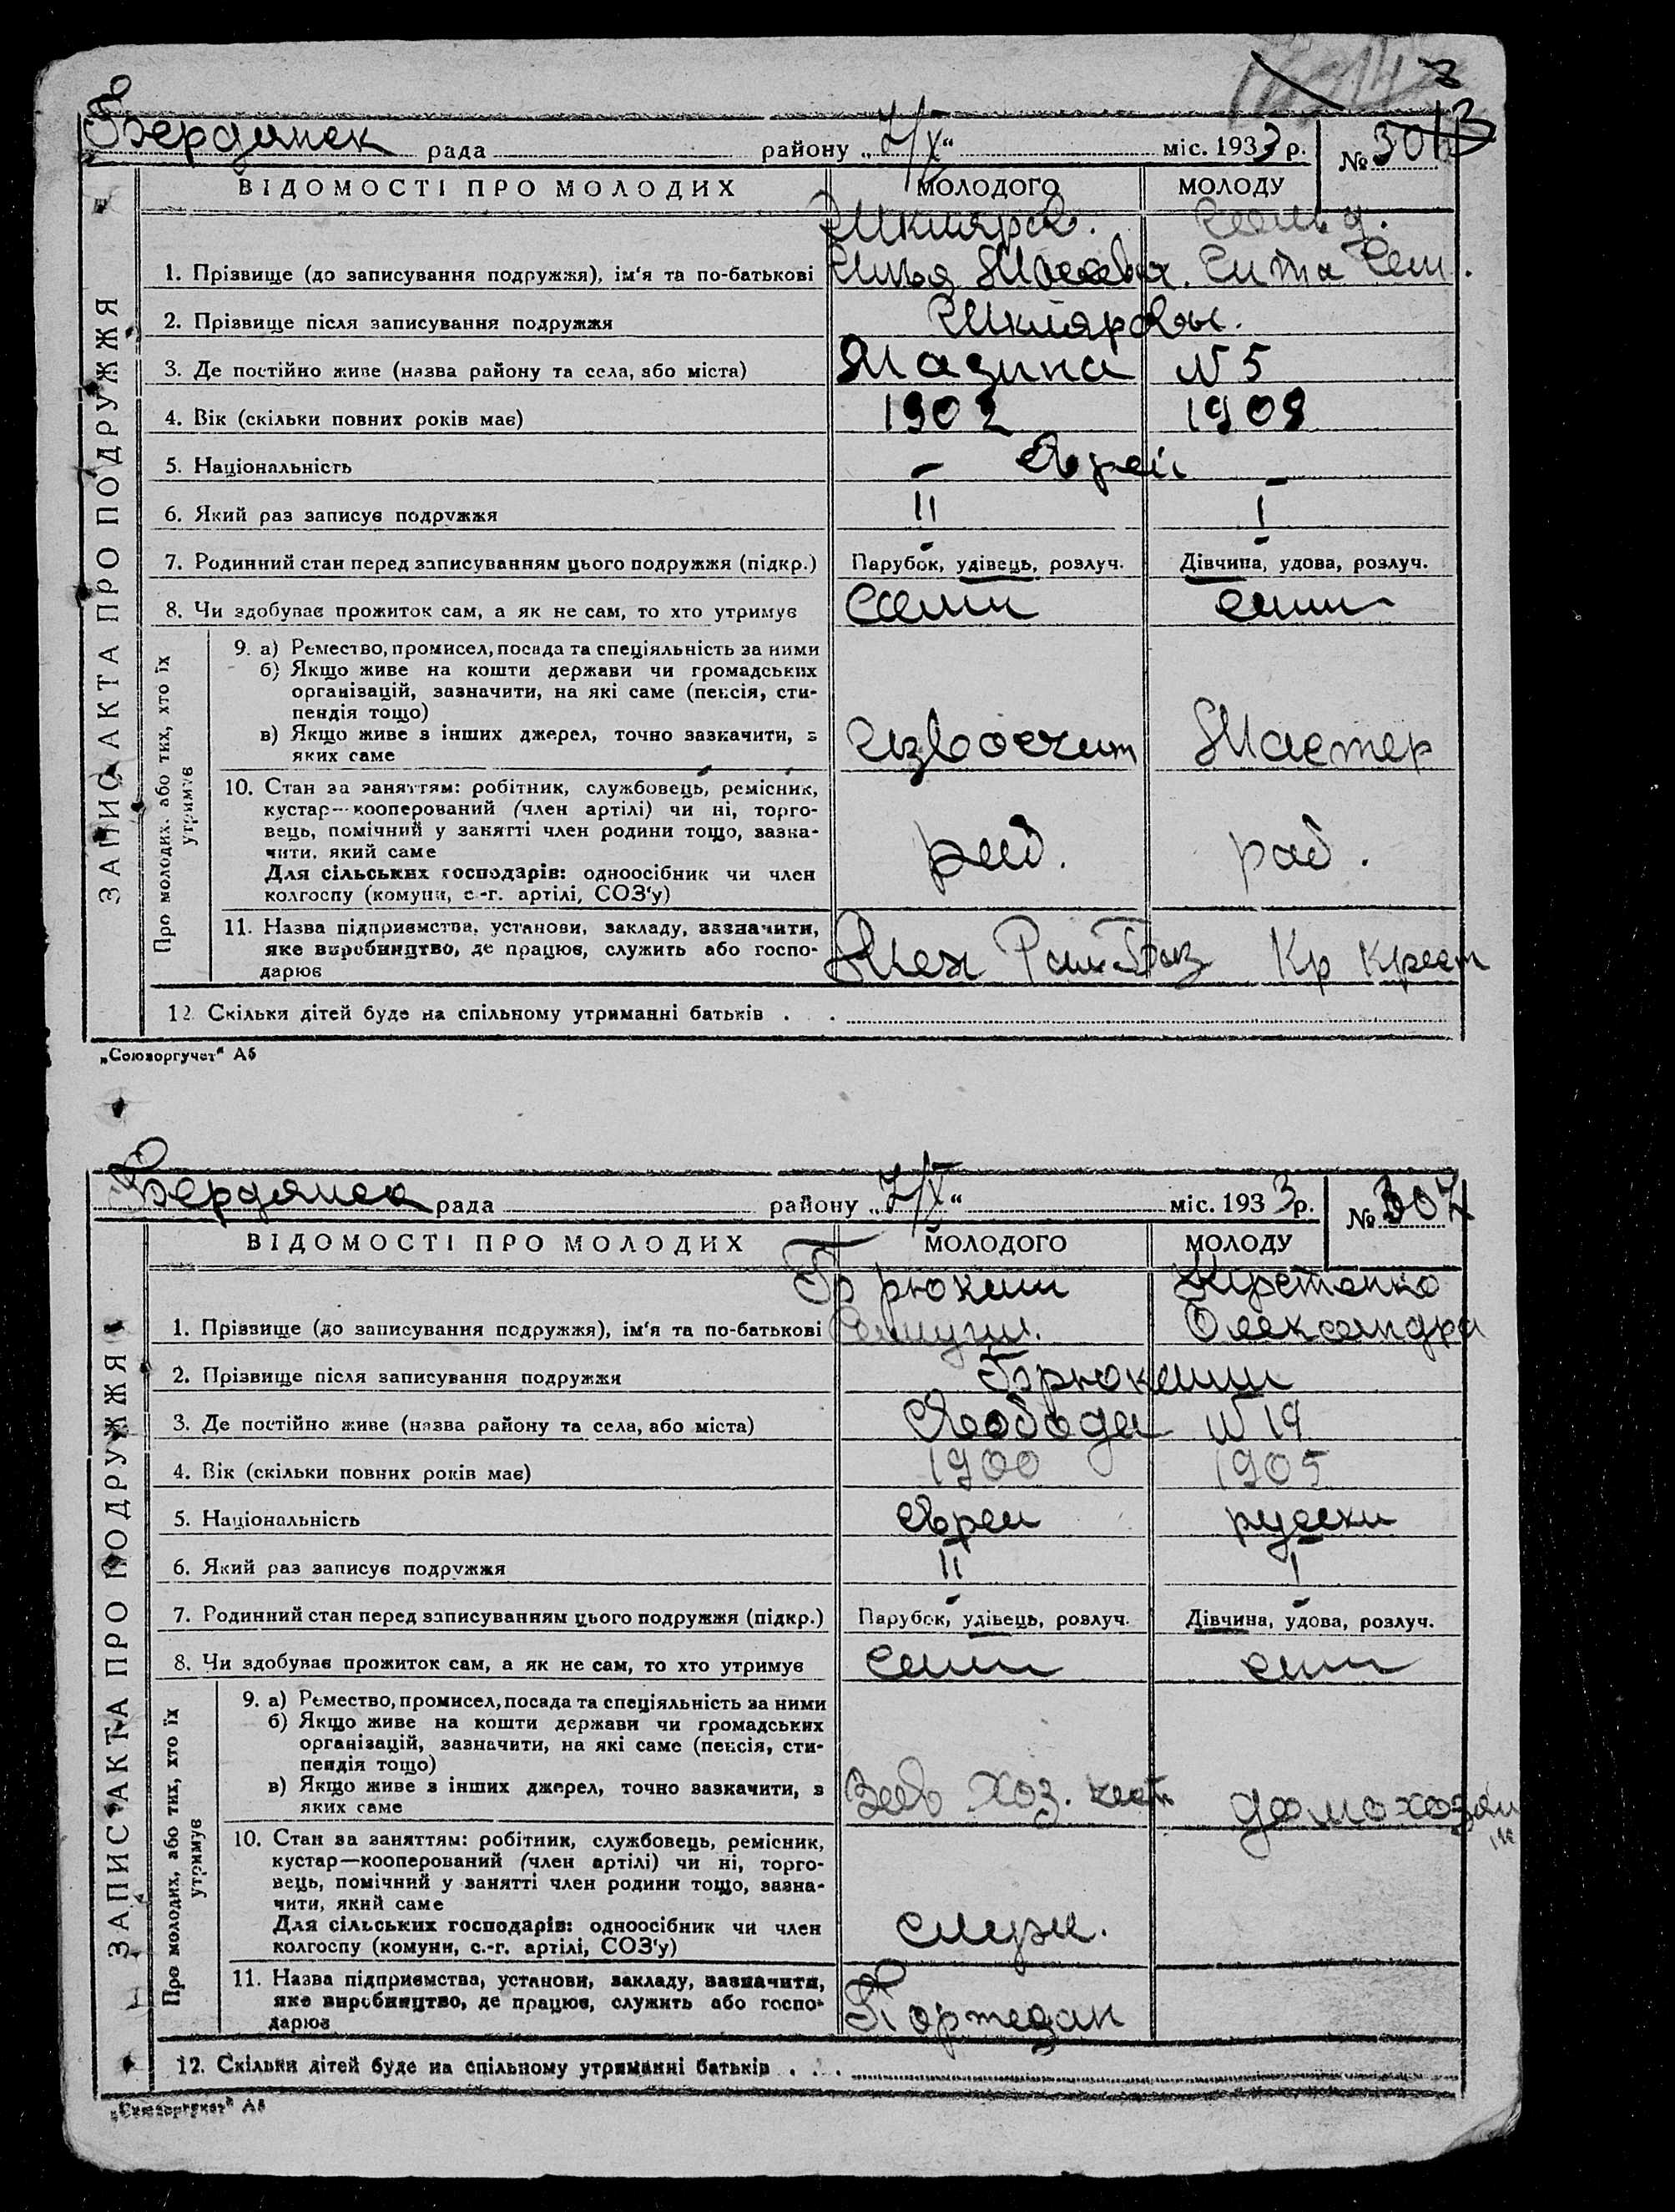 Бердянск рада району „7/X“ міс. 1933 р. №
ВІДОМОСТІ ПРО МОЛОДИХ МОЛОДОГО МОЛОДУ
ЗАПИС АКТА ПРО ПОДРУЖЖЯ
Шкляров.
1. Прізвище (до записування подружжя), ім'я та по-батькові Илья
2. Прізвище після записування подружжя Шкляровы.
3. Де постійно живе (назва району та села, або міста) Мазина N 5
4. Вік (скільки повних років має) 1902 1908
5. Національність Еврей
6. Який раз записує подружжя II I
7. Родинний стан перед записуванням цього подружжя (підкр.) Парубок, удівець, розлуч. Дівчина, удова, розлуч.
8. Чи здобуває прожиток сам, а як не сам, то хто утримує сами
Про молодих, або тих, хто їх утримує
9. а) Ремество, промисел, посада та спеціяльність за ними
б) Якщо живе на кошти держави чи громадських
організацій, зазначити, на які саме (пенсія, сти-
пендія тощо)
в) Якщо живе з інших джерел, точно зазначити, з
яких саме Извозчик Мастер
10. Стан за заняттям: робітник, службовець, ремісник,
кустар—кооперований (член артілі) чи ні, торго-
вець, помічний у занятті член родини тощо, зазна-
чити, який саме раб. раб.
Для сільських господарів: одноосібник чи член
колгоспу (комуни, с.-г. артілі, СОЗ'у)
11. Назва підприємства, установи, закладу, зазначити,
яке виробництво, де працює, служить або госпо-
дарює Кр Крест
12 Скільки дітей буде на спільному утриманні батьків . .
„Союзоргучет“ А5
Бердянск рада району „7/X“ міс. 1933 р. № 307
ВІДОМОСТІ ПРО МОЛОДИХ МОЛОДОГО МОЛОДУ
ЗАПИС АКТА ПРО ПОДРУЖЖЯ
1. Прізвище (до записування подружжя), ім'я та по-батькові Олександра
2. Прізвище після записування подружжя
3. Де постійно живе (назва району та села, або міста) Свобода N 19
4. Вік (скільки повних років має) 1900 1905
5. Національність еврей русски
6. Який раз записує подружжя II I
7. Родинний стан перед записуванням цього подружжя (підкр.) Парубок, удівець, розлуч. Дівчина, удова, розлуч.
8. Чи здобуває прожиток сам, а як не сам, то хто утримує сами
Про молодих, або тих, хто їх утримує
9. а) Ремество, промисел, посада та спеціяльність за ними
б) Якщо живе на кошти держави чи громадських
організацій, зазначити, на які саме (пенсія, сти-
пендія тощо)
в) Якщо живе з інших джерел, точно зазначити, з
яких саме Зав Хоз. част домохозяй
10. Стан за заняттям: робітник, службовець, ремісник,
кустар—кооперований (член артілі) чи ні, торго-
вець, помічний у занятті член родини тощо, зазна-
чити, який саме
Для сільських господарів: одноосібник чи член служ.
колгоспу (комуни, с.-г. артілі, СОЗ'у)
11. Назва підприємства, установи, закладу, зазначити,
яке виробництво, де працює, служить або госпо-
дарює
12. Скільки дітей буде на спільному утриманні батьків . . .
„Союзоргучет“ А5